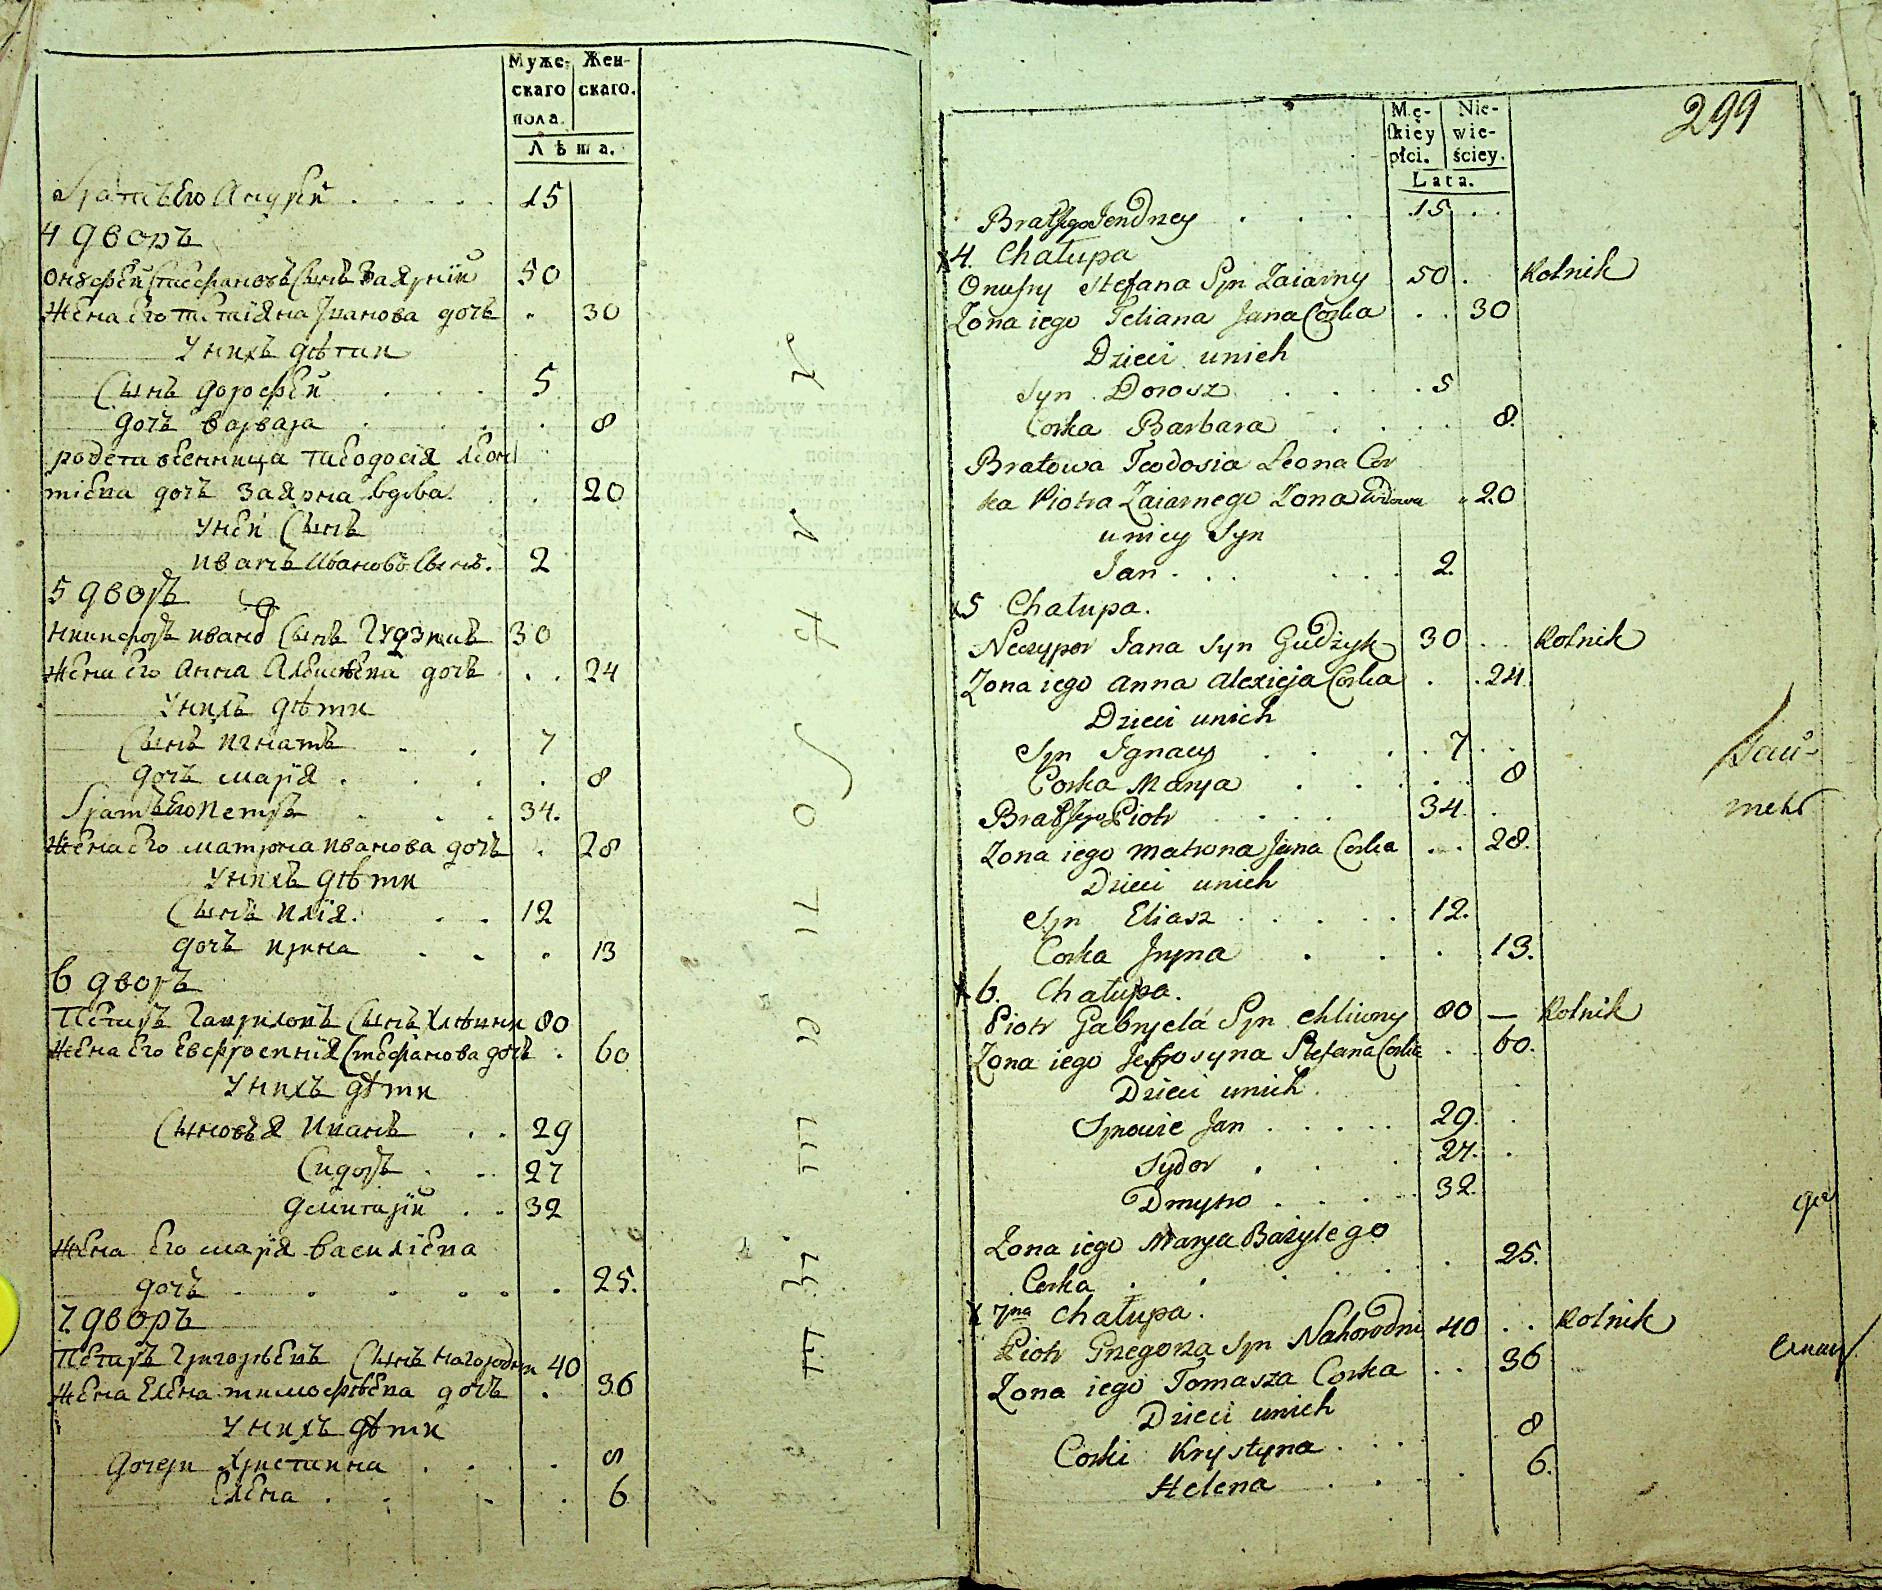 Муже-
скаго
пола.
Жен-
скаго.
Лѣта.
братъ Его Андрей 15
4 дворъ
Онуфрей Стефановъ Сынъ Заярний 50
Жена его татияна Іванова дочъ 30
У нихъ дѣти
Сынъ дорофей 5
дочъ варвара 8
родственница тиеодосія леон
тиева дочъ Заярна вдова 20
У ней Сынъ
иванъ Ивановъ Сынъ. 2
5 дворъ
Никифоръ иванов Сынъ Гудзикъ 30
Жена его Анна Алексѣева дочъ 24
У нихъ дѣти
Сынъ игнатъ 7
дочъ марія 8
братъ Его Петръ 34.
Жена его матрона иванова дочъ 28
У нихъ дѣти
Сынъ илія. 12
дочъ ирина 13
6 дворъ
Петръ Гавриловъ Сынъ Хлѣвни 80
Жена его Евфросинія Стефанова дочъ 60
У нихъ дѣти
Сыновья Иванъ 29
Сидоръ 27
Дмитрій 32
Жена его марія василіева
дочъ 25.
7 дворъ
Петръ Григорьевъ Сынъ Нагородни 40
Жена Елена тимофѣева дочъ 36
У нихъ дѣти
дочери Христина 8
Елена 6
299
Mę-
ſkiéy
płci.
Nie-
wie-
ściey.
Lata.
Brat Jego Jendrzey 15
4. Chałupa
Onufry Stefana Syn Zaiarny 50 Rolnik
Zona iego Tetiana Jana Corka 30
Dzieci unich
Syn Dorosz 5
Corka Barbara 8.
Bratowa Teodosia Leona Cor
ka Piotra Zaiarnego Zona wdowa 20
uniey Syn
Jan 2.
5 Chałupa.
Neczypor Jana Syn Gudzyk 30 Rolnik
Zona iego Anna Alexieja Corka 24.
Dzieci unich
Syn Ignacy 7
Corka Marya 8
Brat Jego Piotr 34.
Zona iego Matrona Jana Corka 28.
Dzieci unich
Syn Eliasz 12.
Corka Jryna 13.
6. Chałupa.
Piotr Gabryela Syn Chliwny 80 — Rolnik
Zona iego Jefrosyna Stefana Corka 60.
Dzieci unich.
Synowie Jan 29.
Sydor 27.
Dmytro 32.
Zona iego Marya Bazylego
Corka 25.
7na Chałupa.
Piotr Gregorza Syn Nahorodni 40 Rolnik
Zona iego Tomasza Corka 36
Dzieci unich
Corki Krystyna 8
Helena 6.